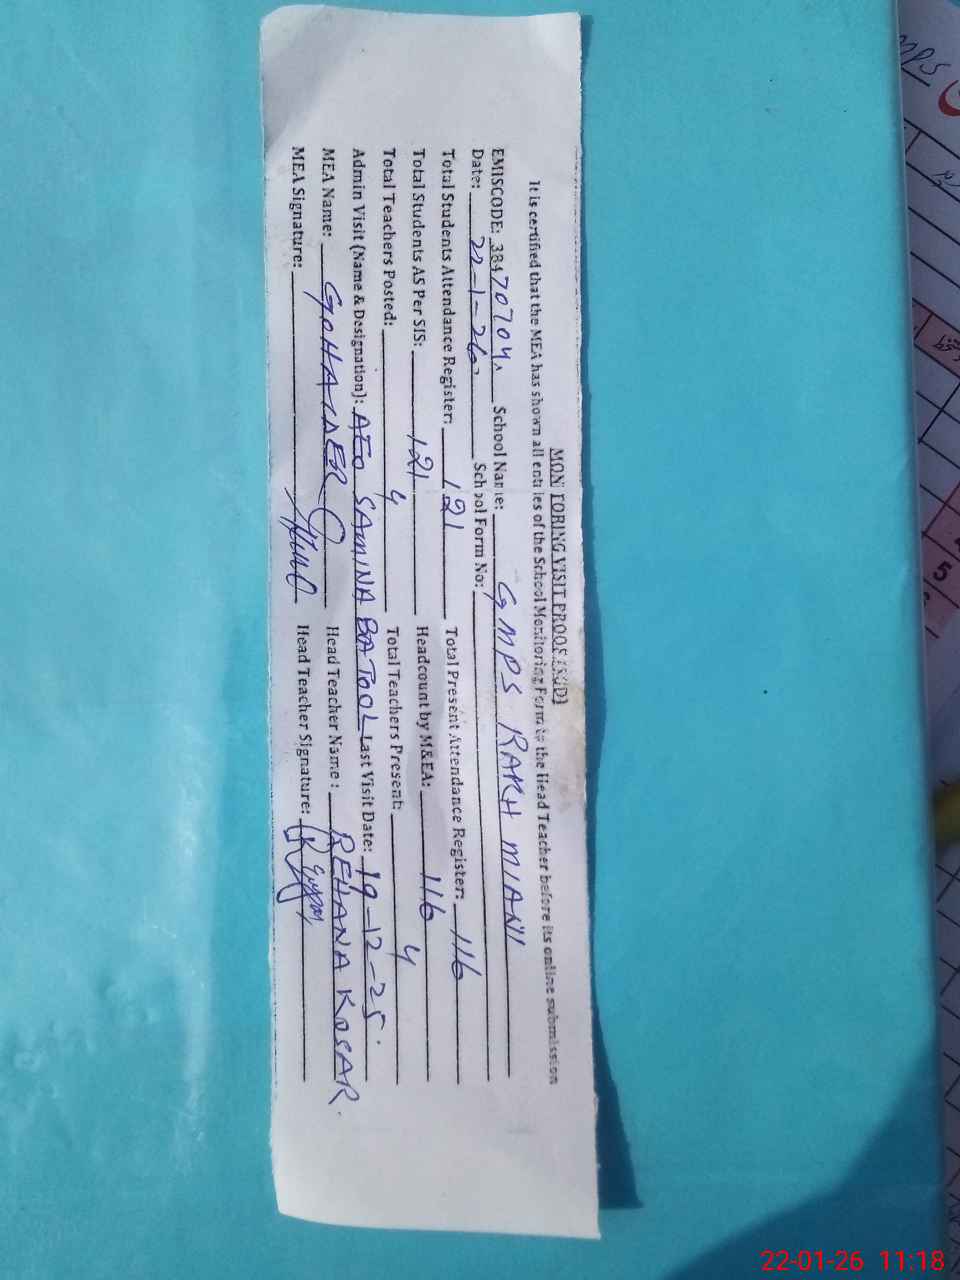 MONITORING VISIT PROOF
It is certified that the MEA has shown all entries of the School Monitoring Form to the Head Teacher before its online submission
EMISCODE: 38470704 School Name: GMPS RAKH MIANI
Date: 22-1-26 School Form No:
Total Students Attendance Register: 121 Total Present Attendance Register: 116
Total Students AS Per SIS: 121 Headcount by M&EA: 116
Total Teachers Posted: 4 Total Teachers Present: 4
Admin Visit (Name & Designation): AEO SAMINA BATOOL Last Visit Date: 19-12-25
MEA Name: G.HAIDER Head Teacher Name: REHANA KOSAR.
MEA Signature: Head Teacher Signature:
MPS
5
22-01-26 11:18